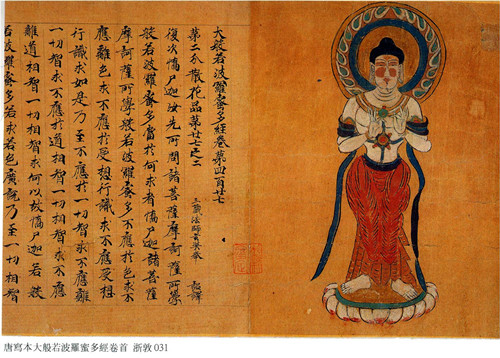 大般若波羅蜜多經卷第四百廿七
第二分散花品第廿七之二
三藏法師玄奘奉 詔譯
復次憍尸迦汝先所問諸菩薩摩訶薩所學
般若波羅蜜多當於何求者憍尸迦諸菩薩
摩訶薩所學般若波羅蜜多不應於色求不
應離色求不應於受想行識求不應離受想
行識求如是乃至不應於一切智求不應離
一切智求不應於道相智一切相智求不應
離道相智一切相智求何以故憍尸迦若般
若波羅蜜多若求若色廣說乃至一切相智
唐寫本大般若波羅蜜多經卷首 浙敦 031